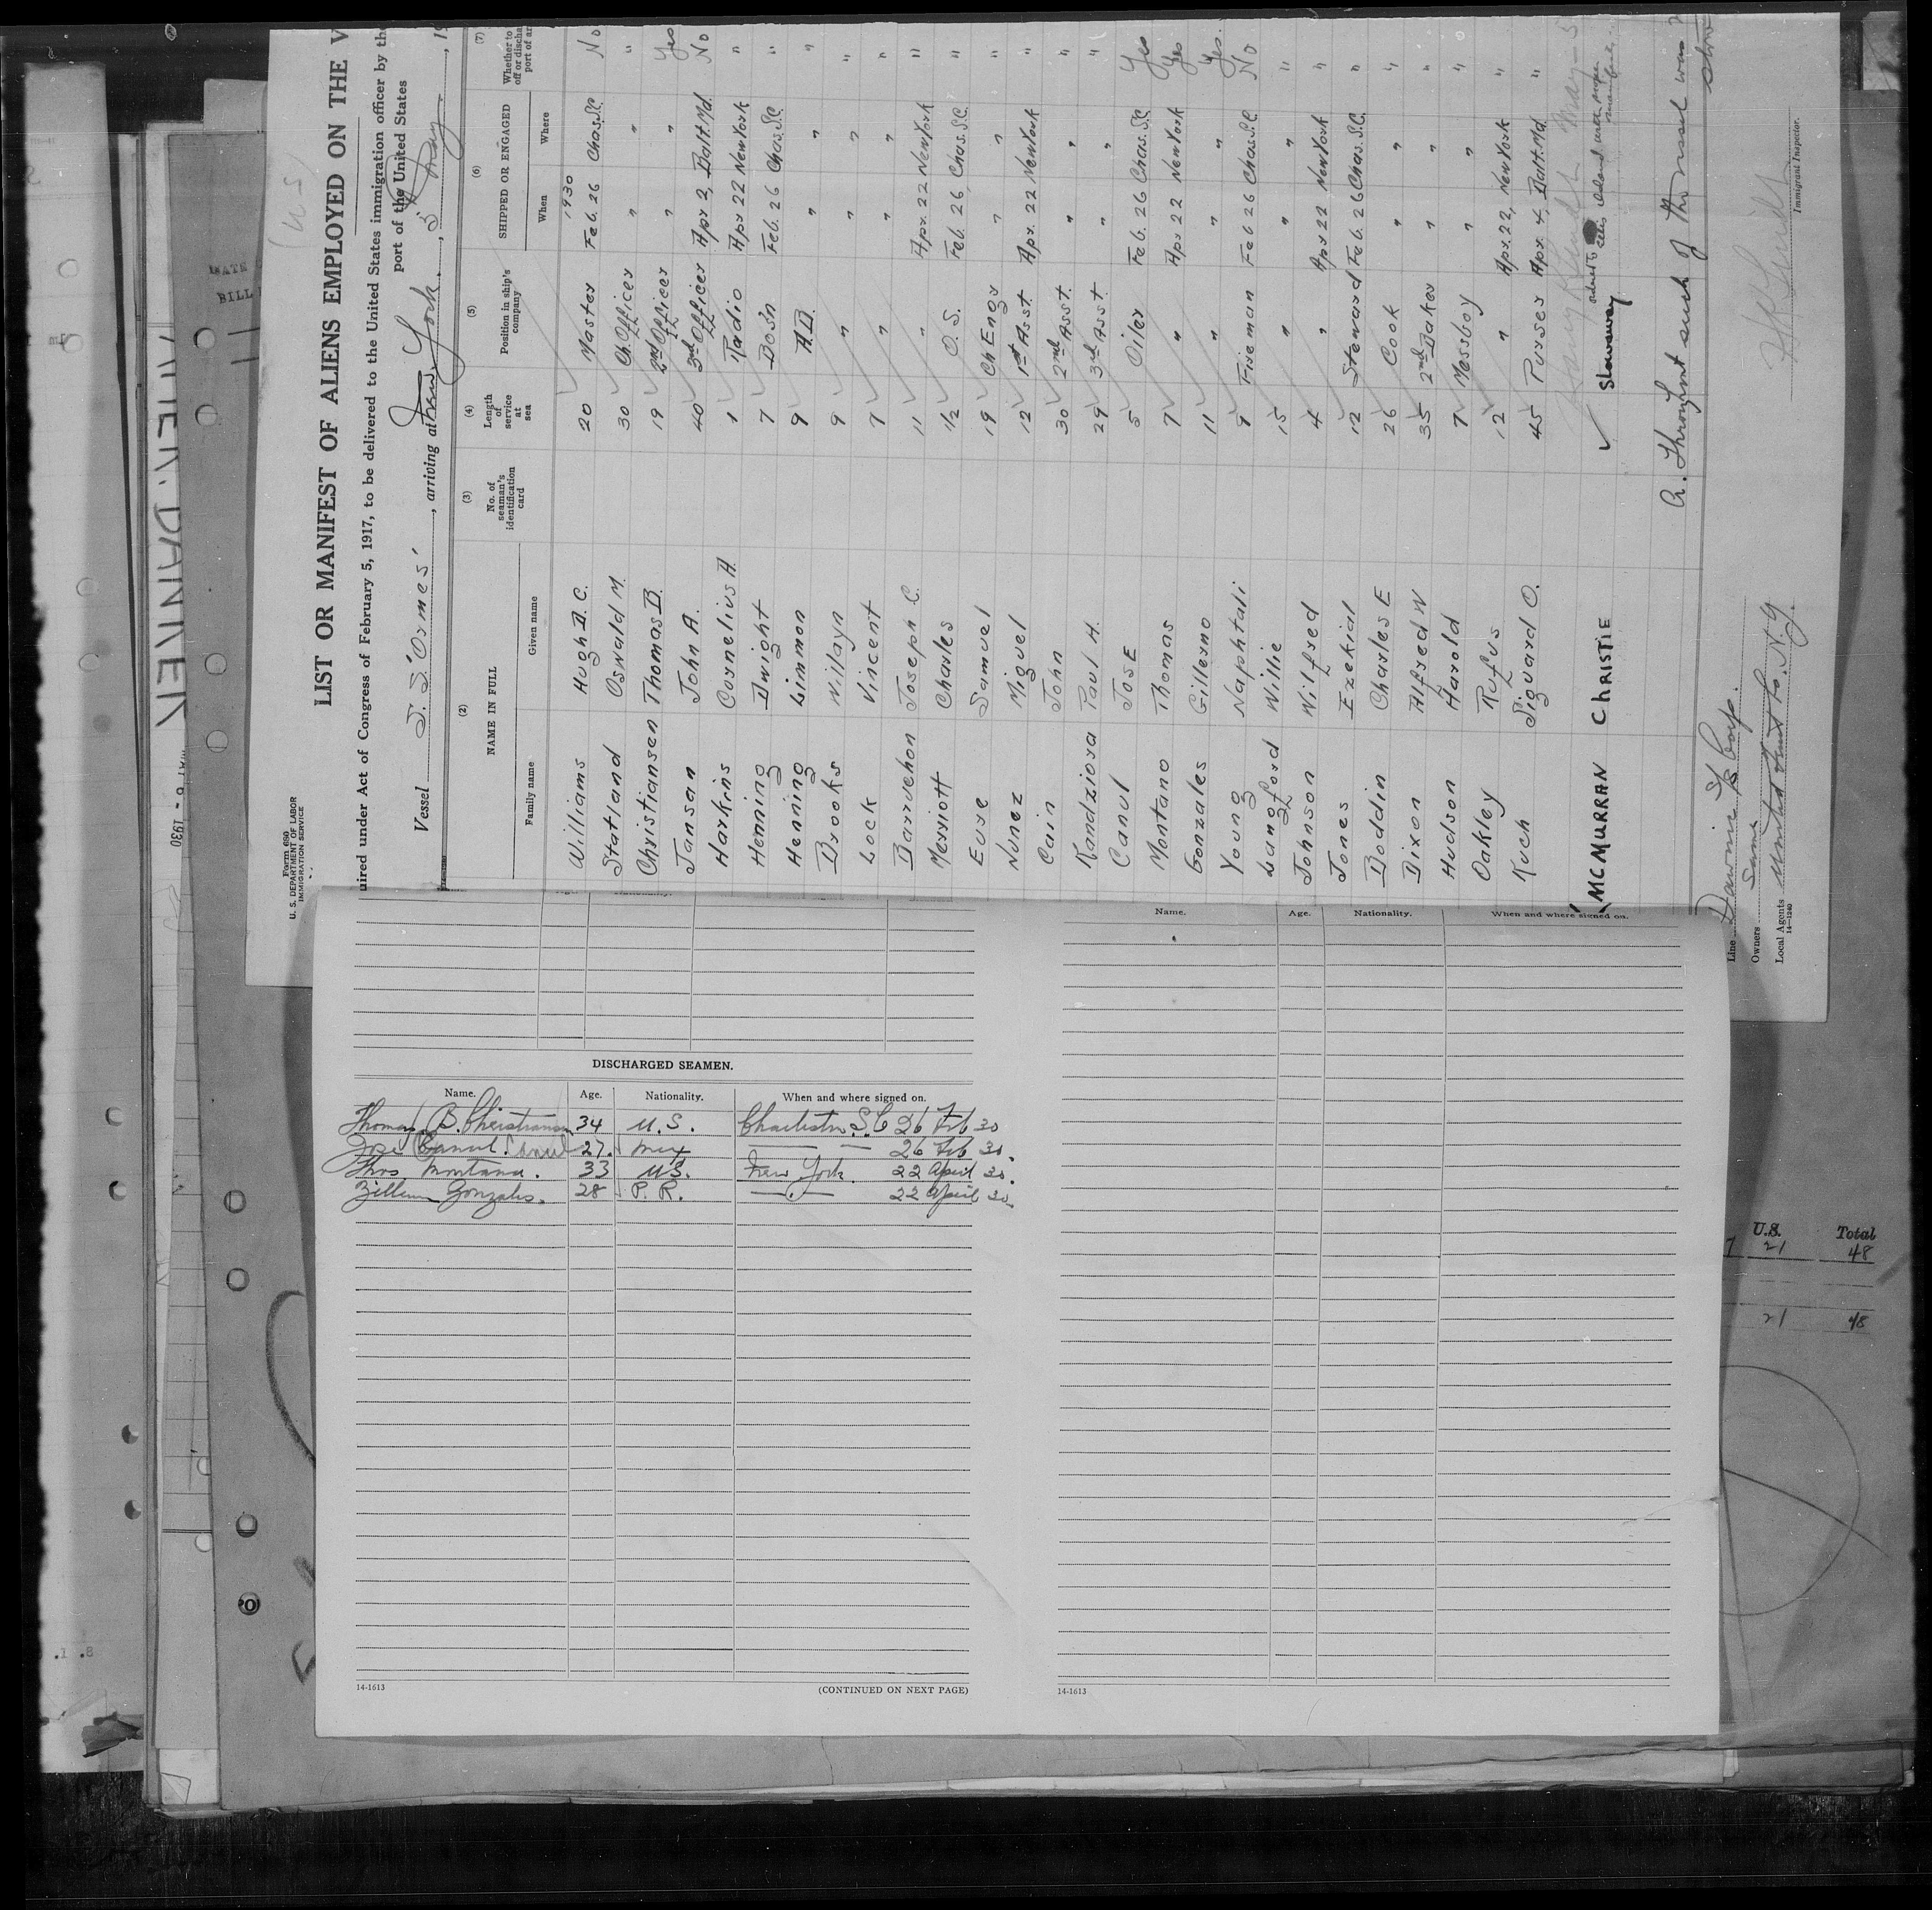 Form 680
U. S. DEPARTMENT OF LABOR
IMMIGRATION SERVICE
LIST OR MANIFEST OF ALIENS EMPLOYED ON THE V
uired under Act of Congress of February 5, 1917, to be delivered to the United States immigration officer by the
port of the United States
Vessel S. S. 'Ormes', arriving at New York, 5 May, 19
(2) (3) (4) (5) (6) (7)
NAME IN FULL No. of seaman's identification card Length of service at sea Position in ship's company SHIPPED OR ENGAGED Whether to
off or discha
port of ar
Family name Given name When Where
1930
Williams Hugh D. C. 20 Master Feb. 26 Chas. S.C. No
Statland Oswald M. 30 Ch. Officer " " "
Christiansen Thomas B. 19 2nd Officer " " Yes
Jansan John A. 40 3rd Officer Apr 2, Balt. Md. No
Harkins Cornelius A. 1 Radio Apr 22 New York "
Henning Dwight 7 Bos'n Feb. 26 Chas. S.C. "
Henning Limmon 9 A.B. " " "
Brooks Willayn 9 " " " "
Lock Vincent 7 " " " "
Barruehon Joseph C. 11 " Apr. 22 New York "
Merriott Charles 1/2 O.S. Feb. 26, Chas. S.C. "
Eure Samuel 19 Ch Engr " " "
Nunez Miguel 12 1st Asst. Apr. 22 New York "
Cain John 30 2nd Asst. " " "
Kandziora Paul H. 29 3rd Asst. " " "
Canul Jose 5 Oiler Feb. 26 Chas. S.C. Yes
Montano Thomas 7 " Apr 22 New York Yes
Gonzales Gillermo 11 " " " Yes.
Young Naphtali 9 Fireman Feb 26 Chas. S.C. No
Langford Willie 15 " " " "
Johnson Wilfred 4 " Apr 22 New York "
Jones Ezekial 12 Steward Feb. 26 Chas. S.C. "
Boddin Charles E 26 Cook " " "
Dixon Alfred W 35 2nd Baker " " "
Hudson Harold 7 Messboy " " "
Oakley Rufus 12 " Apr. 22, New York "
Kuch Siguard O. 45 Purser Apr. 4, Balt. Md. "
McMURRAN CHRISTIE Stowaway
Line
Owners Same
Local Agents United Fruit Co. N.Y.
14—1240
Immigrant Inspector.
Name. Age. Nationality. When and where signed on.
DISCHARGED SEAMEN.
Name. Age. Nationality. When and where signed on.
Thomas B. Christiansen 34 U.S. Charleston S.C 26 Feb 30
Jose Canul 27. Mex 26 Feb 30.
Thos Montana. 33 U.S. New York. 22 April 30.
Gonzales. 28 P. R. 22 April 30
14-1613
(CONTINUED ON NEXT PAGE)
14-1613
U.S. Total
21 48
21 48